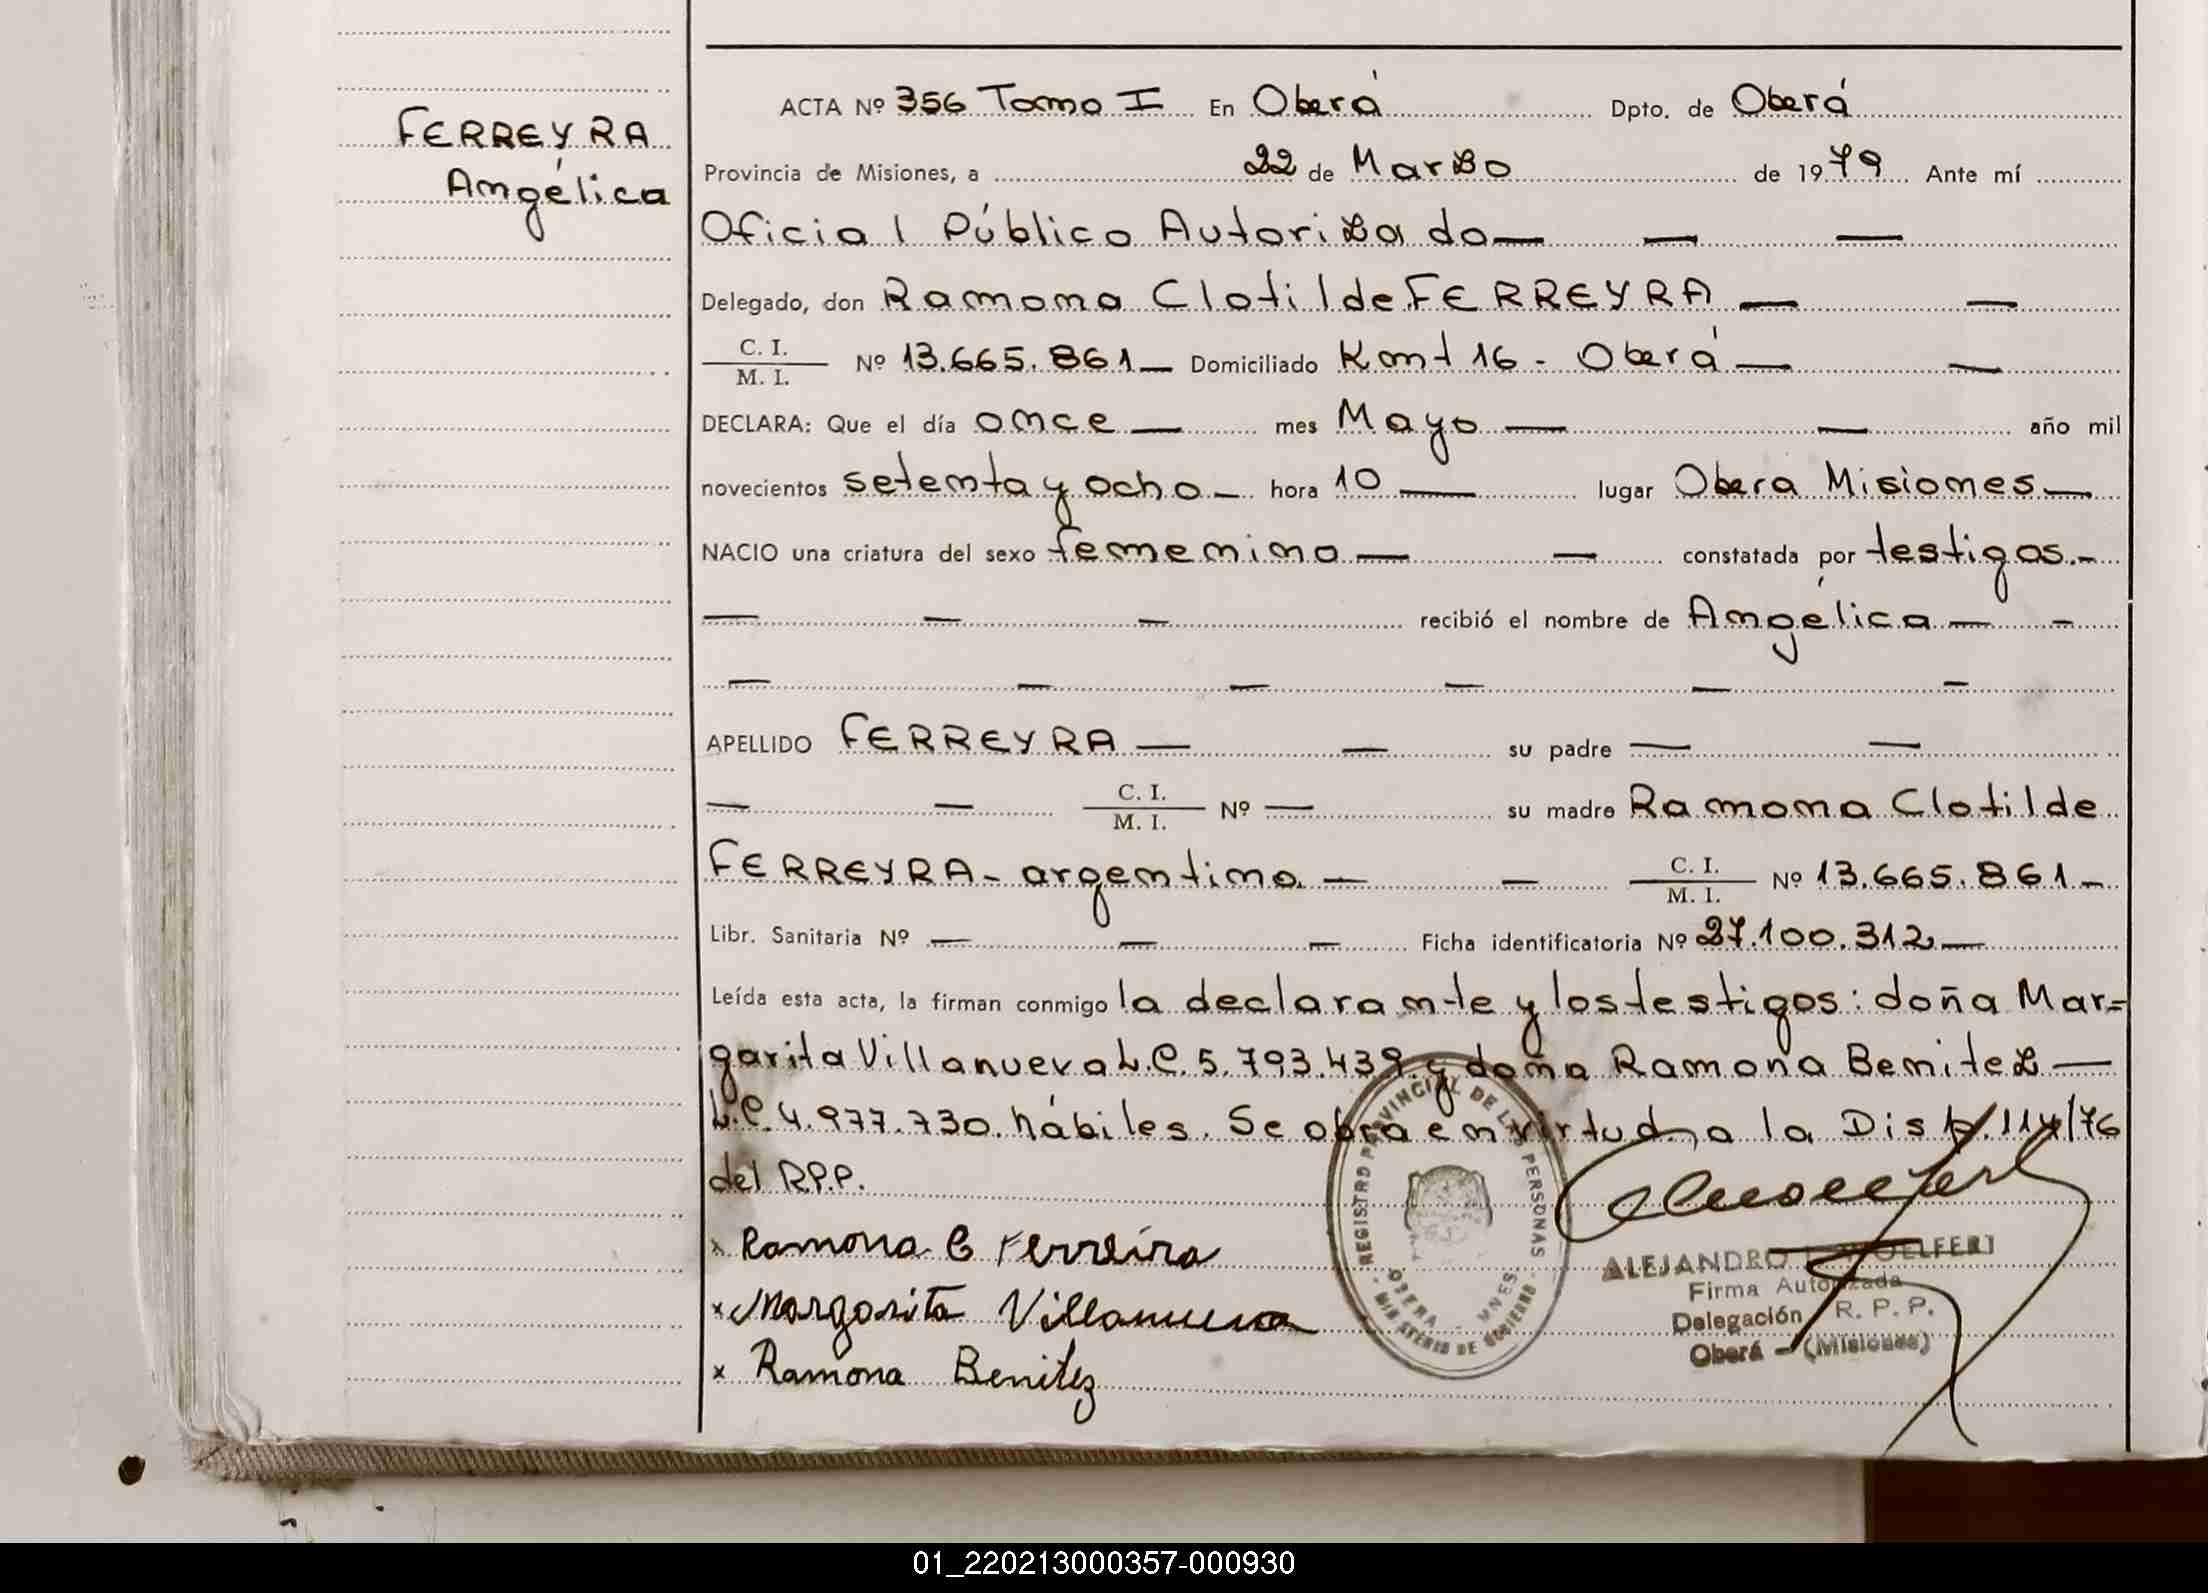 FERREYRA
Angélica
ACTA Nº 356 Tomo I En Oberá Dpto. de Oberá
Provincia de Misiones, a 22 de Marzo de 1979 Ante mí
Oficial Público Autorizado — — —
Delegado, don Ramona Clotilde FERREYRA — —
C. I. / M. I. Nº 13.665.861 — Domiciliado Kmt 16 - Oberá — —
DECLARA: Que el día once — mes Mayo — — año mil
novecientos setenta y ocho — hora 10 — lugar Obera Misiones —
NACIO una criatura del sexo femenino — — constatada por testigos.-
— — — recibió el nombre de Angélica — -
— — — — — —
APELLIDO FERREYRA — — su padre — —
— — C. I. / M. I. Nº — su madre Ramona Clotilde
FERREYRA - argentina. — — C. I. / M. I. Nº 13.665.861 -
Libr. Sanitaria Nº — — — Ficha identificatoria Nº 27.100.312 —
Leída esta acta, la firman conmigo la declarante y los testigos: doña Mar=
garita Villanueva L.C. 5.793.439 y doña Ramona Benitez —
L.C. 4.977.730. hábiles. Se obra en virtud a la Disp. 114/76
del R.P.P.
x Ramona C Ferreira
x Margarita Villanueva
x Ramona Benitez
REGISTRO PROVINCIAL DE LAS PERSONAS
OBERA - MNES.
MINISTERIO DE GOBIERNO
ALEJANDRO
Firma Autorizada
Delegación R. P. P.
Oberá - (Misiones)
01_220213000357-000930